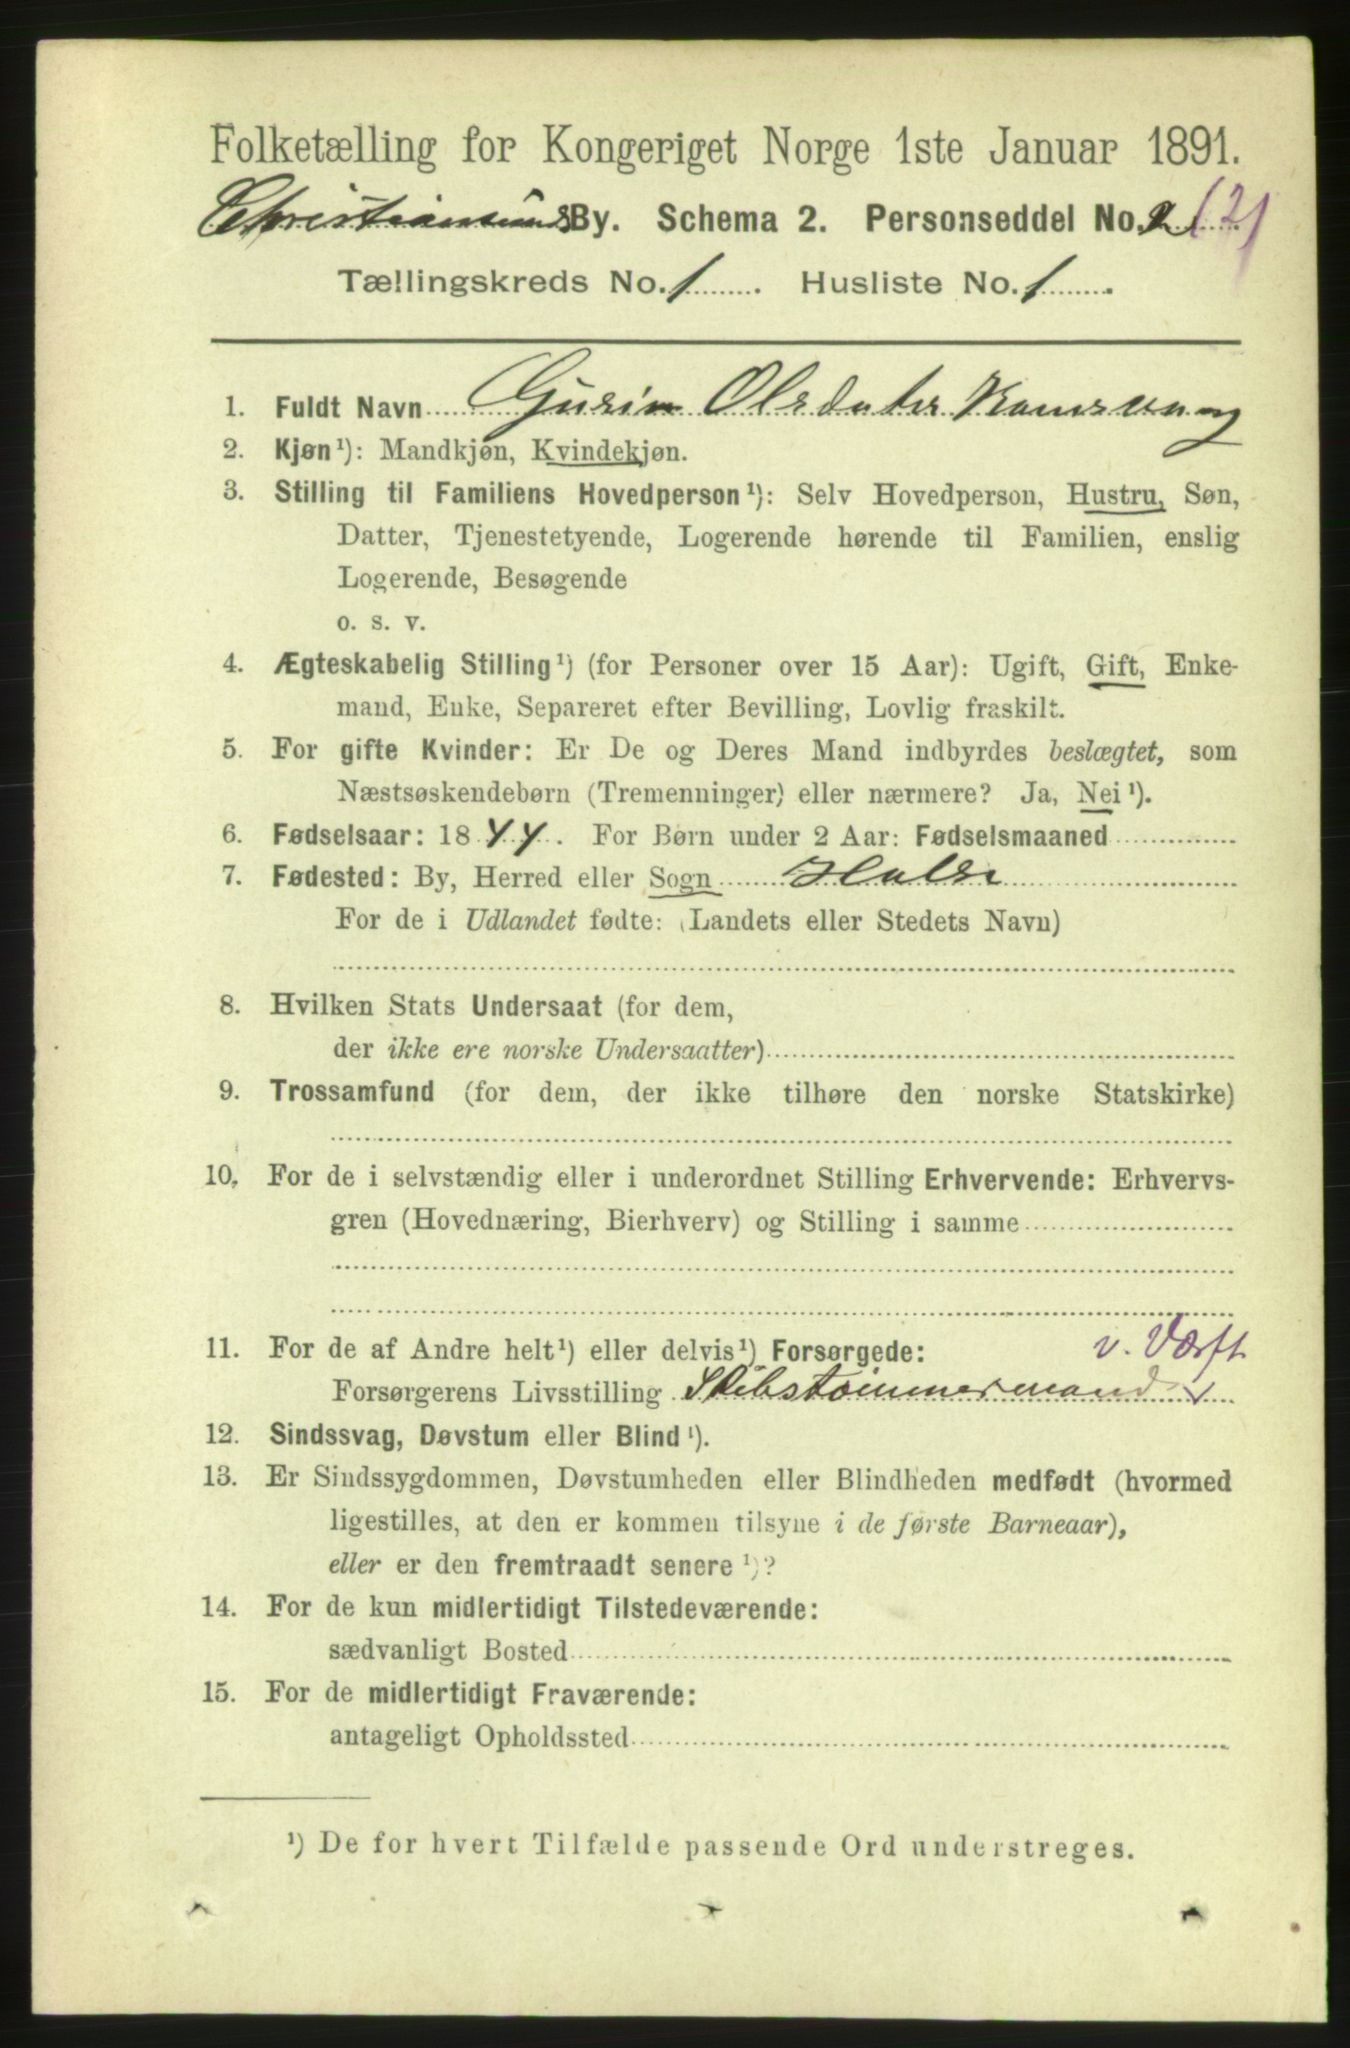 Folketælling for Kongeriget Norge 1ste Januar 1891.
Christiansunds By. Schema 2. Personseddel No. 2 (2)
Tællingskreds No. 1. Husliste No. 1.
1. Fuldt Navn Gurine Olsdater
2. Kjøn¹): Mandkjøn, Kvindekjøn.
3. Stilling til Familiens Hovedperson¹): Selv Hovedperson, Hustru, Søn,
Datter, Tjenestetyende, Logerende hørende til Familien, enslig
Logerende, Besøgende
o. s. v.
4. Ægteskabelig Stilling¹) (for Personer over 15 Aar): Ugift, Gift, Enke-
mand, Enke, Separeret efter Bevilling, Lovlig fraskilt.
5. For gifte Kvinder: Er De og Deres Mand indbyrdes beslægtet, som
Næstsøskendebørn (Tremenninger) eller nærmere? Ja, Nei¹).
6. Fødselsaar: 1844. For Børn under 2 Aar: Fødselsmaaned
7. Fødested: By, Herred eller Sogn Halse
For de i Udlandet fødte: (Landets eller Stedets Navn)
8. Hvilken Stats Undersaat (for dem,
der ikke ere norske Undersaatter)
9. Trossamfund (for dem, der ikke tilhøre den norske Statskirke)
10. For de i selvstændig eller i underordnet Stilling Erhvervende: Erhvervs-
gren (Hovednæring, Bierhverv) og Stilling i samme
11. For de af Andre helt¹) eller delvis¹) Forsørgede: v. Værft
Forsørgerens Livsstilling Skibstømmermand
12. Sindssvag, Døvstum eller Blind¹).
13. Er Sindssygdommen, Døvstumheden eller Blindheden medfødt (hvormed
ligestilles, at den er kommen tilsyne i de første Barneaar),
eller er den fremtraadt senere¹)?
14. For de kun midlertidigt Tilstedeværende:
sædvanligt Bosted
15. For de midlertidigt Fraværende:
antageligt Opholdssted
¹) De for hvert Tilfælde passende Ord understreges.